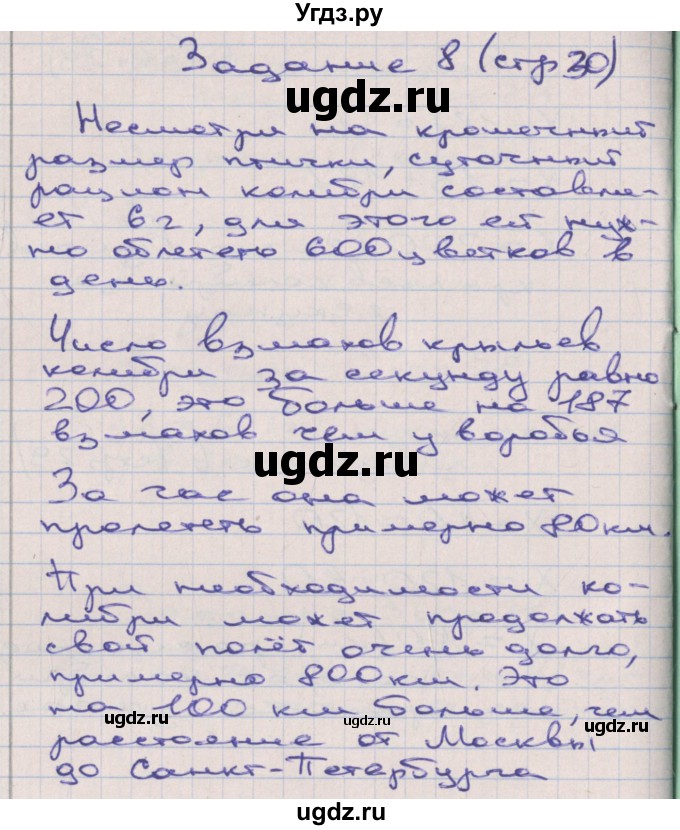 Угдз.ру
Задание 8 (стр 30)
ugdz.ru
Несмотря на крошечный
размер птички, суточный
рацион колибри составля-
ет 6 г, для этого ей нуж-
но облететь 600 цветков в
день.
Число взмахов крыльев
колибри за секунду равно
200, это больше на 187
взмахов чем у воробья
ugdz.ru
За час она может
пролететь примерно 80 км.
При необходимости ко-
либри может продолжать
свой полёт очень долго,
примерно 800 км. Это
на 100 км больше, чем
ugdz.ru ugdz.ru ugdz.ru
расстояние от Москвы
до Санкт-Петербурга
ugdz.ru ugdz.ru ugdz.ru
ugdz.ru